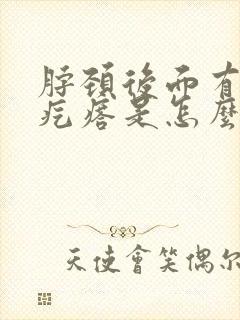 脖頸後面有
疙瘩是怎麼
天使會笑偶尔